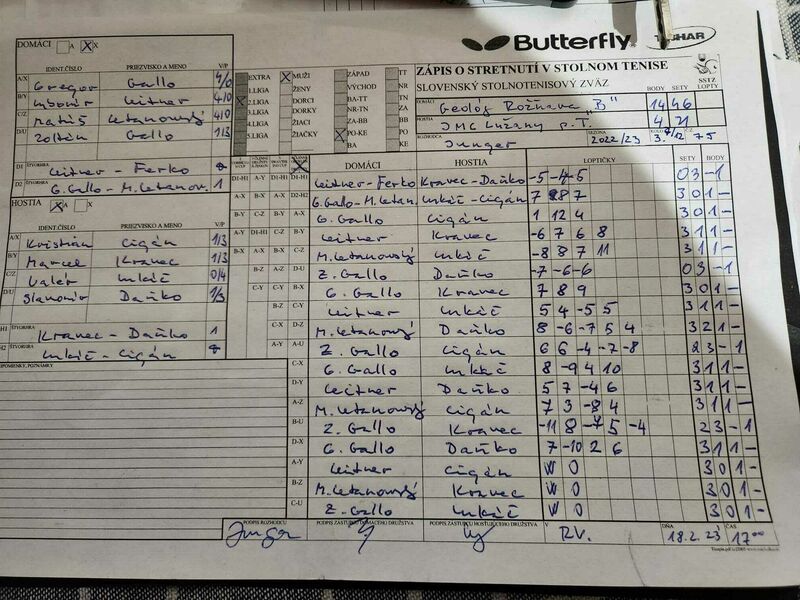 DOMÁCI A X X
IDENT.ČÍSLO PRIEZVISKO A MENO V/P
A/X Gregor Gallo 4/0
B/Y Ľubomír Leitner 4/0
C/Z Matúš Letanovský 4/0
D/U Zoltán Gallo 1/3
D1 ŠTVORHRA Leitner - Ferko
D2 ŠTVORHRA G. Gallo - M. Letanov. 1
HOSTIA A X
IDENT.ČÍSLO PRIEZVISKO A MENO V/P
A/X Kristián Cigán 1/3
B/Y Marcel Kravec 1/3
C/Z Valér Lukáč 0/4
D/U Slavomír Daňko 1/3
H1 ŠTVORHRA Kravec - Daňko 1
H2 ŠTVORHRA Lukáč - Cigán
POZNÁMKY
EXTRA X MUŽI ZÁPAD TT
1.LIGA ŽENY VÝCHOD NR
2.LIGA DORCI BA-TT TN
3.LIGA DORKY NR-TN ZA
4.LIGA ŽIACI ZA-BB BB
5.LIGA ŽIAČKY PO-KE PO
BA KE
Butterfly TIBHAR
ZÁPIS O STRETNUTÍ V STOLNOM TENISE
SLOVENSKÝ STOLNOTENISOVÝ ZVÄZ BODY SETY SSTZ LOPTY
DOMÁCI Geológ Rožňava "B" 14 46
HOSTIA JMC Lužany p.T. 4 21
ROZHODCA Junger SEZÓNA 2022/23 KOLO
DOMÁCI HOSTIA LOPTIČKY SETY BODY
D1-H1 A-Y D1-H1 D1-H1 Leitner - Ferko Kravec - Daňko -5 -4 -5 0 3 - 1
A-X B-X A-X D2-H2 G. Gallo - M. Letan. Lukáč - Cigán 7 8 7 3 0 1 -
B-Y C-Z B-Y A-X G. Gallo Cigán 1 12 4 3 0 1 -
A-Y D1-H1 C-Z B-Y Leitner Kravec -6 7 6 8 3 1 1 -
B-X A-X D-U C-Z M. Letanovský Lukáč -8 8 7 11 3 1 1 -
B-Z A-Z D-U Z. Gallo Daňko -7 -6 -6 0 3 - 1
C-Y B-X A-Y G. Gallo Kravec 7 8 9 3 0 1 -
B-Z Leitner Lukáč 5 4 -5 5 3 1 1 -
C-X D-Z M. Letanovský Daňko 8 -6 -7 5 4 3 2 1 -
A-Y A-U Z. Gallo Cigán 6 6 -4 -7 -8 2 3 - 1
C-X G. Gallo Lukáč 8 -9 4 10 3 1 1 -
D-Y Leitner Daňko 5 7 -4 6 3 1 1 -
A-Z M. Letanovský Cigán 7 3 -8 4 3 1 1 -
B-U Z. Gallo Kravec -11 8 -7 5 -4 2 3 - 1
D-X G. Gallo Daňko 7 -10 2 6 3 1 1 -
A-Y Leitner Cigán W 0 3 0 1 -
B-Z M. Letanovský Kravec W 0 3 0 1 -
C-U Z. Gallo Lukáč W 0 3 0 1 -
PODPIS ROZHODCU Junger PODPIS ZÁSTUPCU DOMÁCEHO DRUŽSTVA PODPIS ZÁSTUPCU HOSŤUJÚCEHO DRUŽSTVA V RV. DŇA 18.2.23 ČAS 17 00